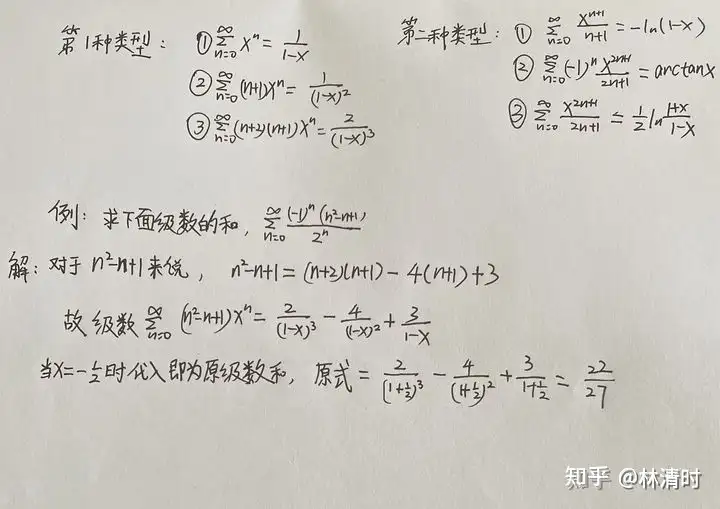 第1种类型： ① ∑_{n=0}^{∞} x^n = 1/(1-x)
② ∑_{n=0}^{∞} (n+1)x^n = 1/(1-x)^2
③ ∑_{n=0}^{∞} (n+2)(n+1)x^n = 2/(1-x)^3
第二种类型： ① ∑_{n=0}^{∞} x^{n+1}/(n+1) = -ln(1-x)
② ∑_{n=0}^{∞} (-1)^n x^{2n+1}/(2n+1) = arctanx
③ ∑_{n=0}^{∞} x^{2n+1}/(2n+1) = 1/2 ln (1+x)/(1-x)
例： 求下面级数的和， ∑_{n=0}^{∞} (-1)^n (n²-n+1)/2^n
解：对于 n²-n+1 来说， n²-n+1 = (n+2)(n+1) - 4(n+1) + 3
故级数 ∑_{n=0}^{∞} (n²-n+1)x^n = 2/(1-x)^3 - 4/(1-x)^2 + 3/(1-x)
当x=-1/2时代入即为原级数和， 原式 = 2/(1+1/2)^3 - 4/(1+1/2)^2 + 3/(1+1/2) = 22/27
知乎 @林清时